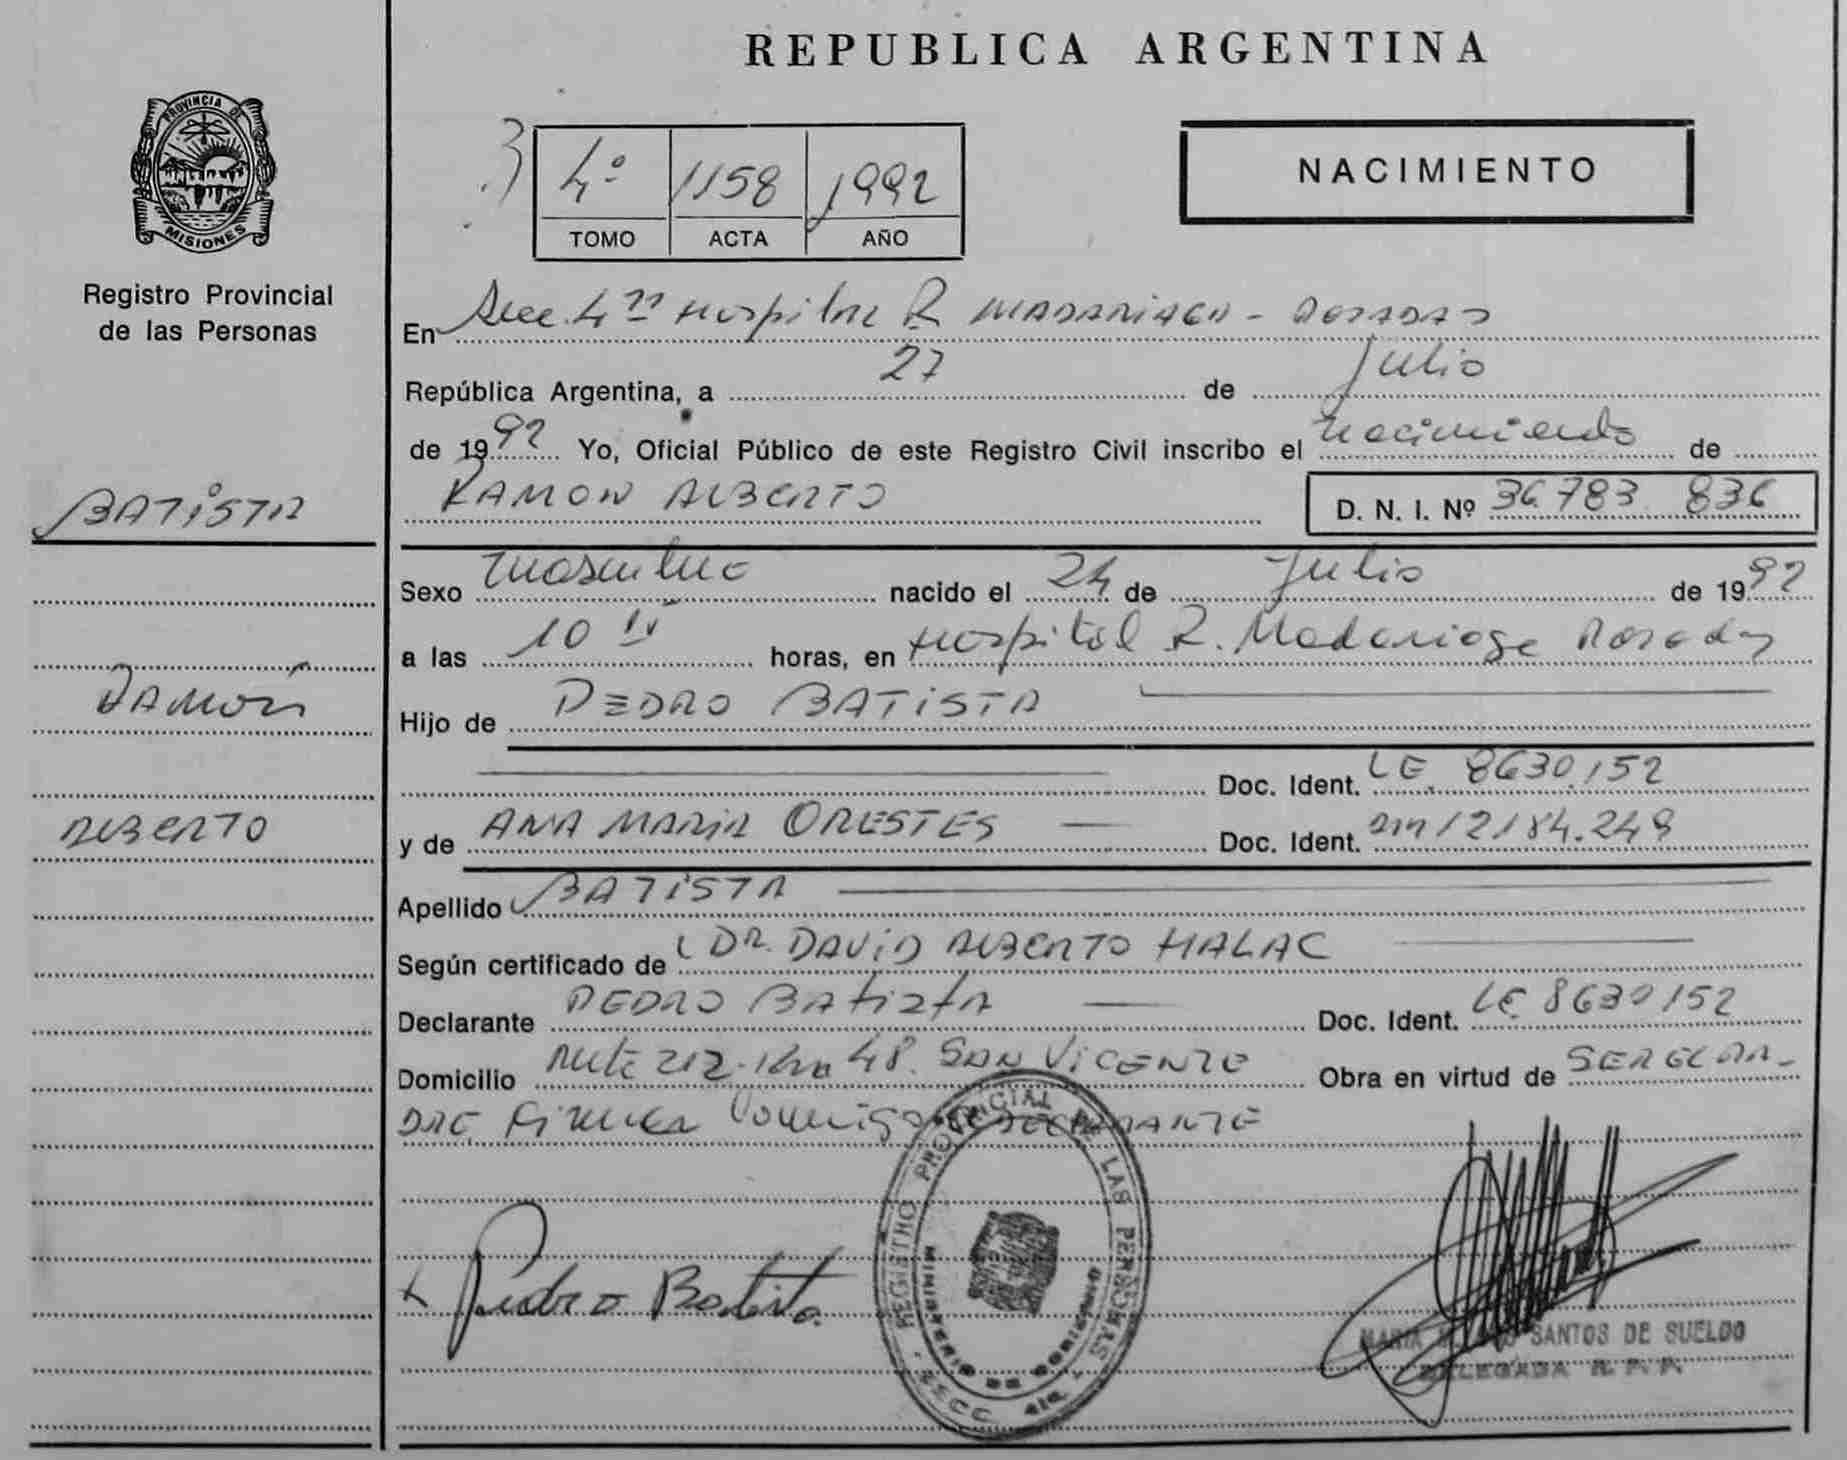 REPUBLICA ARGENTINA
PROVINCIA DE
MISIONES
Registro Provincial
de las Personas
3)
4º 1158 1992
TOMO ACTA AÑO
NACIMIENTO
En Secc. 4ª Hospital R. MADARIAGA - POSADAS
República Argentina, a 27 de Julio
de 1992 Yo, Oficial Público de este Registro Civil inscribo el nacimiento de
RAMON ALBERTO D. N. I. Nº 36.783.836
BATISTA
Sexo masculino nacido el 24 de Julio de 1992
a las 10 horas, en Hospital R. Madariaga Posadas
RAMÓN
Hijo de PEDRO BATISTA
Doc. Ident. LE. 8630.152
ALBERTO
y de ANA MARIA ORESTES Doc. Ident. 12184.249
Apellido BATISTA
Según certificado de DR. DAVID ALBERTO HALAC
Declarante PEDRO Batista Doc. Ident. LE 8630152
Domicilio Ruta 212 - Km 48. SAN VICENTE Obra en virtud de SER EL PA-
DRE, Firma Conmigo el DECLARANTE
Pedro Batista
REGISTRO PROVINCIAL DE LAS PERSONAS
MINISTERIO DE GOBIERNO
SECC. 4ta
MARIA SANTOS DE SUELDO
DELEGADA R. P. P.